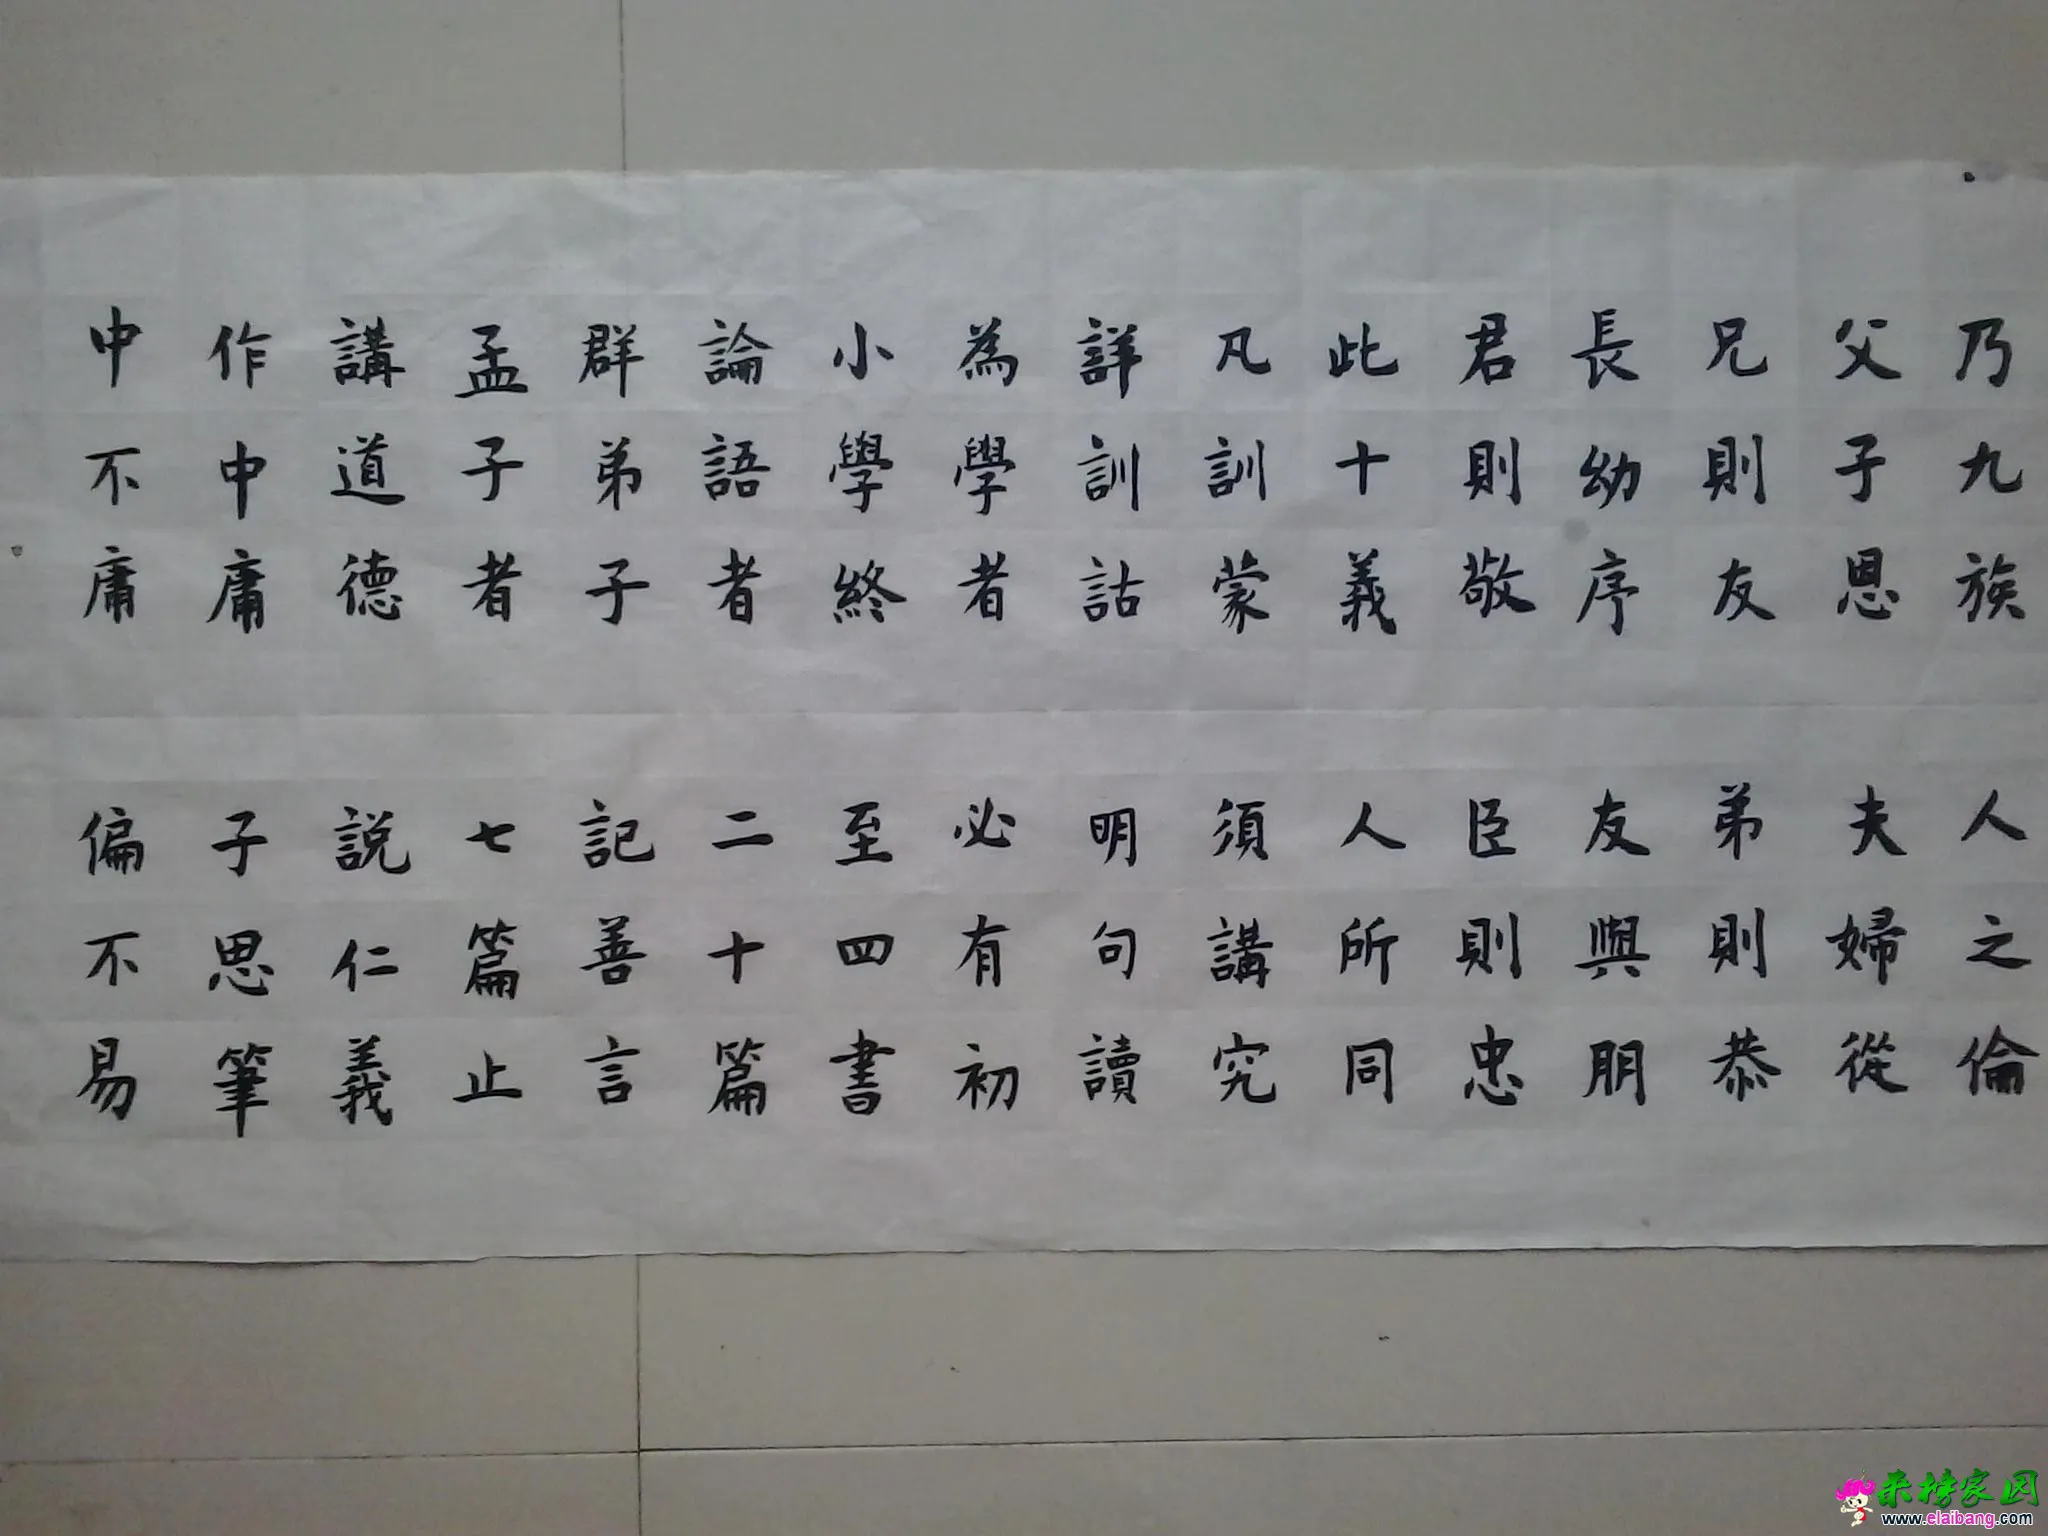 乃九族 人之倫
父子恩 夫婦從
兄則友 弟則恭
長幼序 友與朋
君則敬 臣則忠
此十義 人所同
凡訓蒙 須講究
詳訓詁 明句讀
為學者 必有初
小學終 至四書
論語者 二十篇
群弟子 記善言
孟子者 七篇止
講道德 說仁義
作中庸 子思筆
中不庸 偏不易
来榜家园
www.elaibang.com